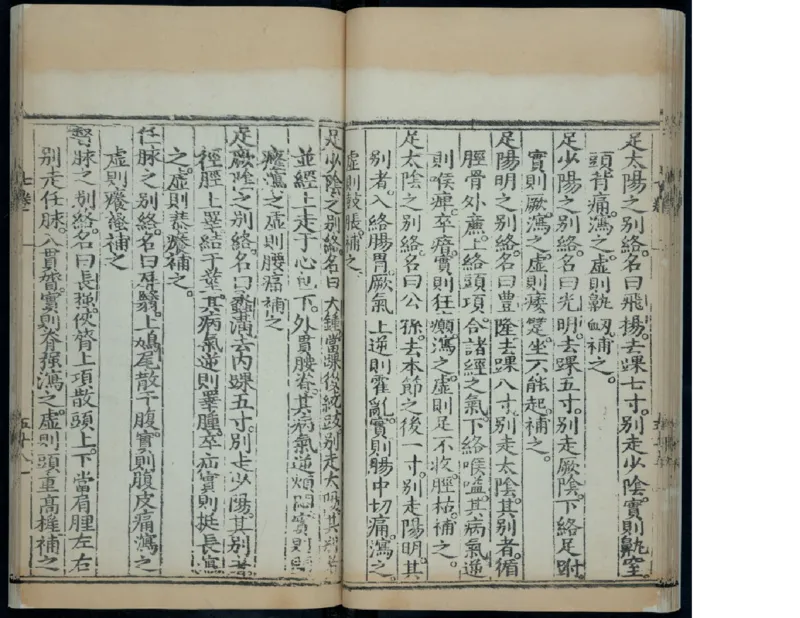 足太陽之別絡。名曰飛揚。去踝七寸。別走少陰。實則鼽窒。
頭背痛。瀉之。虛則鼽衂補之。
足少陽之別絡。名曰光明。去踝五寸。別走厥陰。下絡足跗。
實則厥。瀉之。虛則痿躄。坐不能起。補之。
足陽明之別絡。名曰豊隆。去踝八寸。別走太陰。其別者。循
脛骨外廉。上絡頭項。合諸經之氣。下絡喉嗌。其病氣逆
則喉痺。卒瘖。實則狂癲。瀉之。虛則足不收。脛枯。補之。
足太陰之別絡。名曰公孫。去本節之後一寸。別走陽明。其
別者入絡腸胃。厥氣上逆則霍亂。實則腸中切痛。瀉之。
虛則鼓脹。補之。
足少陰之別絡。名曰大鍾。當踝後繞跟別走太陽。其別者
並經上走于心包下。外貫腰脊。其病氣逆煩悶。實則
癃。瀉之。虛則腰痛。補之
足厥陰之別絡。名曰蠡溝。去內踝五寸。別走少陽。其別者
徑脛上睪結于莖。其病氣逆則睪腫卒疝。實則挺長。瀉
之。虛則暴癢。補之。
任脉之別絡。名曰尾翳。上鳩尾散于腹。實則腹皮痛。瀉之
虛則癢瘙。補之
督脉之別絡。名曰長强。俠脊上項散頭上。下當肩胛左右
別走任脉。入貫膂。實則脊强。瀉之。虛則頭重高搖。補之
七卷
五十八